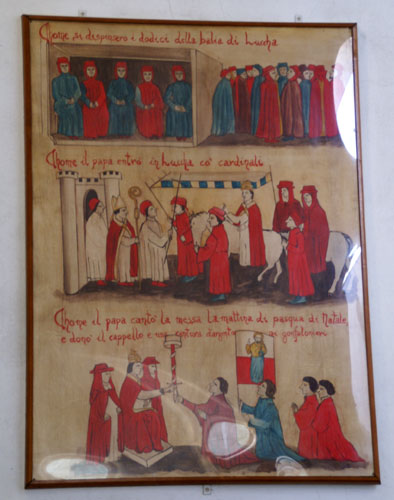 Chome si dispuosero i dodici della balia di Luccha
Chome il papa entrò in Luccha co' cardinali
Chome il papa cantò la messa la mattina di pasqua di Natale
e donò il cappello e una cintura gonfalonieri